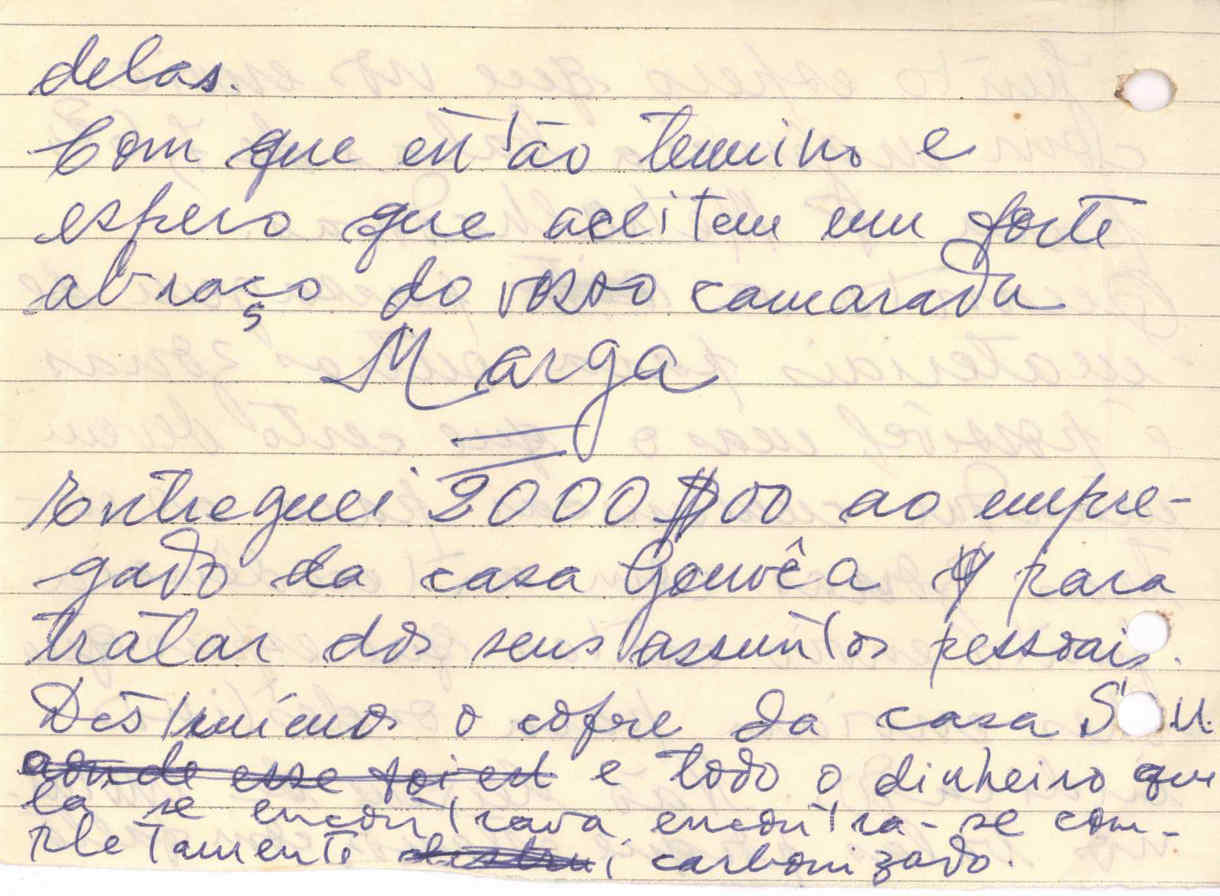 delas.
Com que então termino e
espero que aceitem um forte
abraço do vosso camarada
Marga
Entreguei 2000$00 ao empre-
gado da casa Gouvêa para
tratar dos seus assuntos pessoais.
Destruímos o cofre da casa
e todo o dinheiro que
lá se encontrava encontra-se com-
pletamente carbonizado.